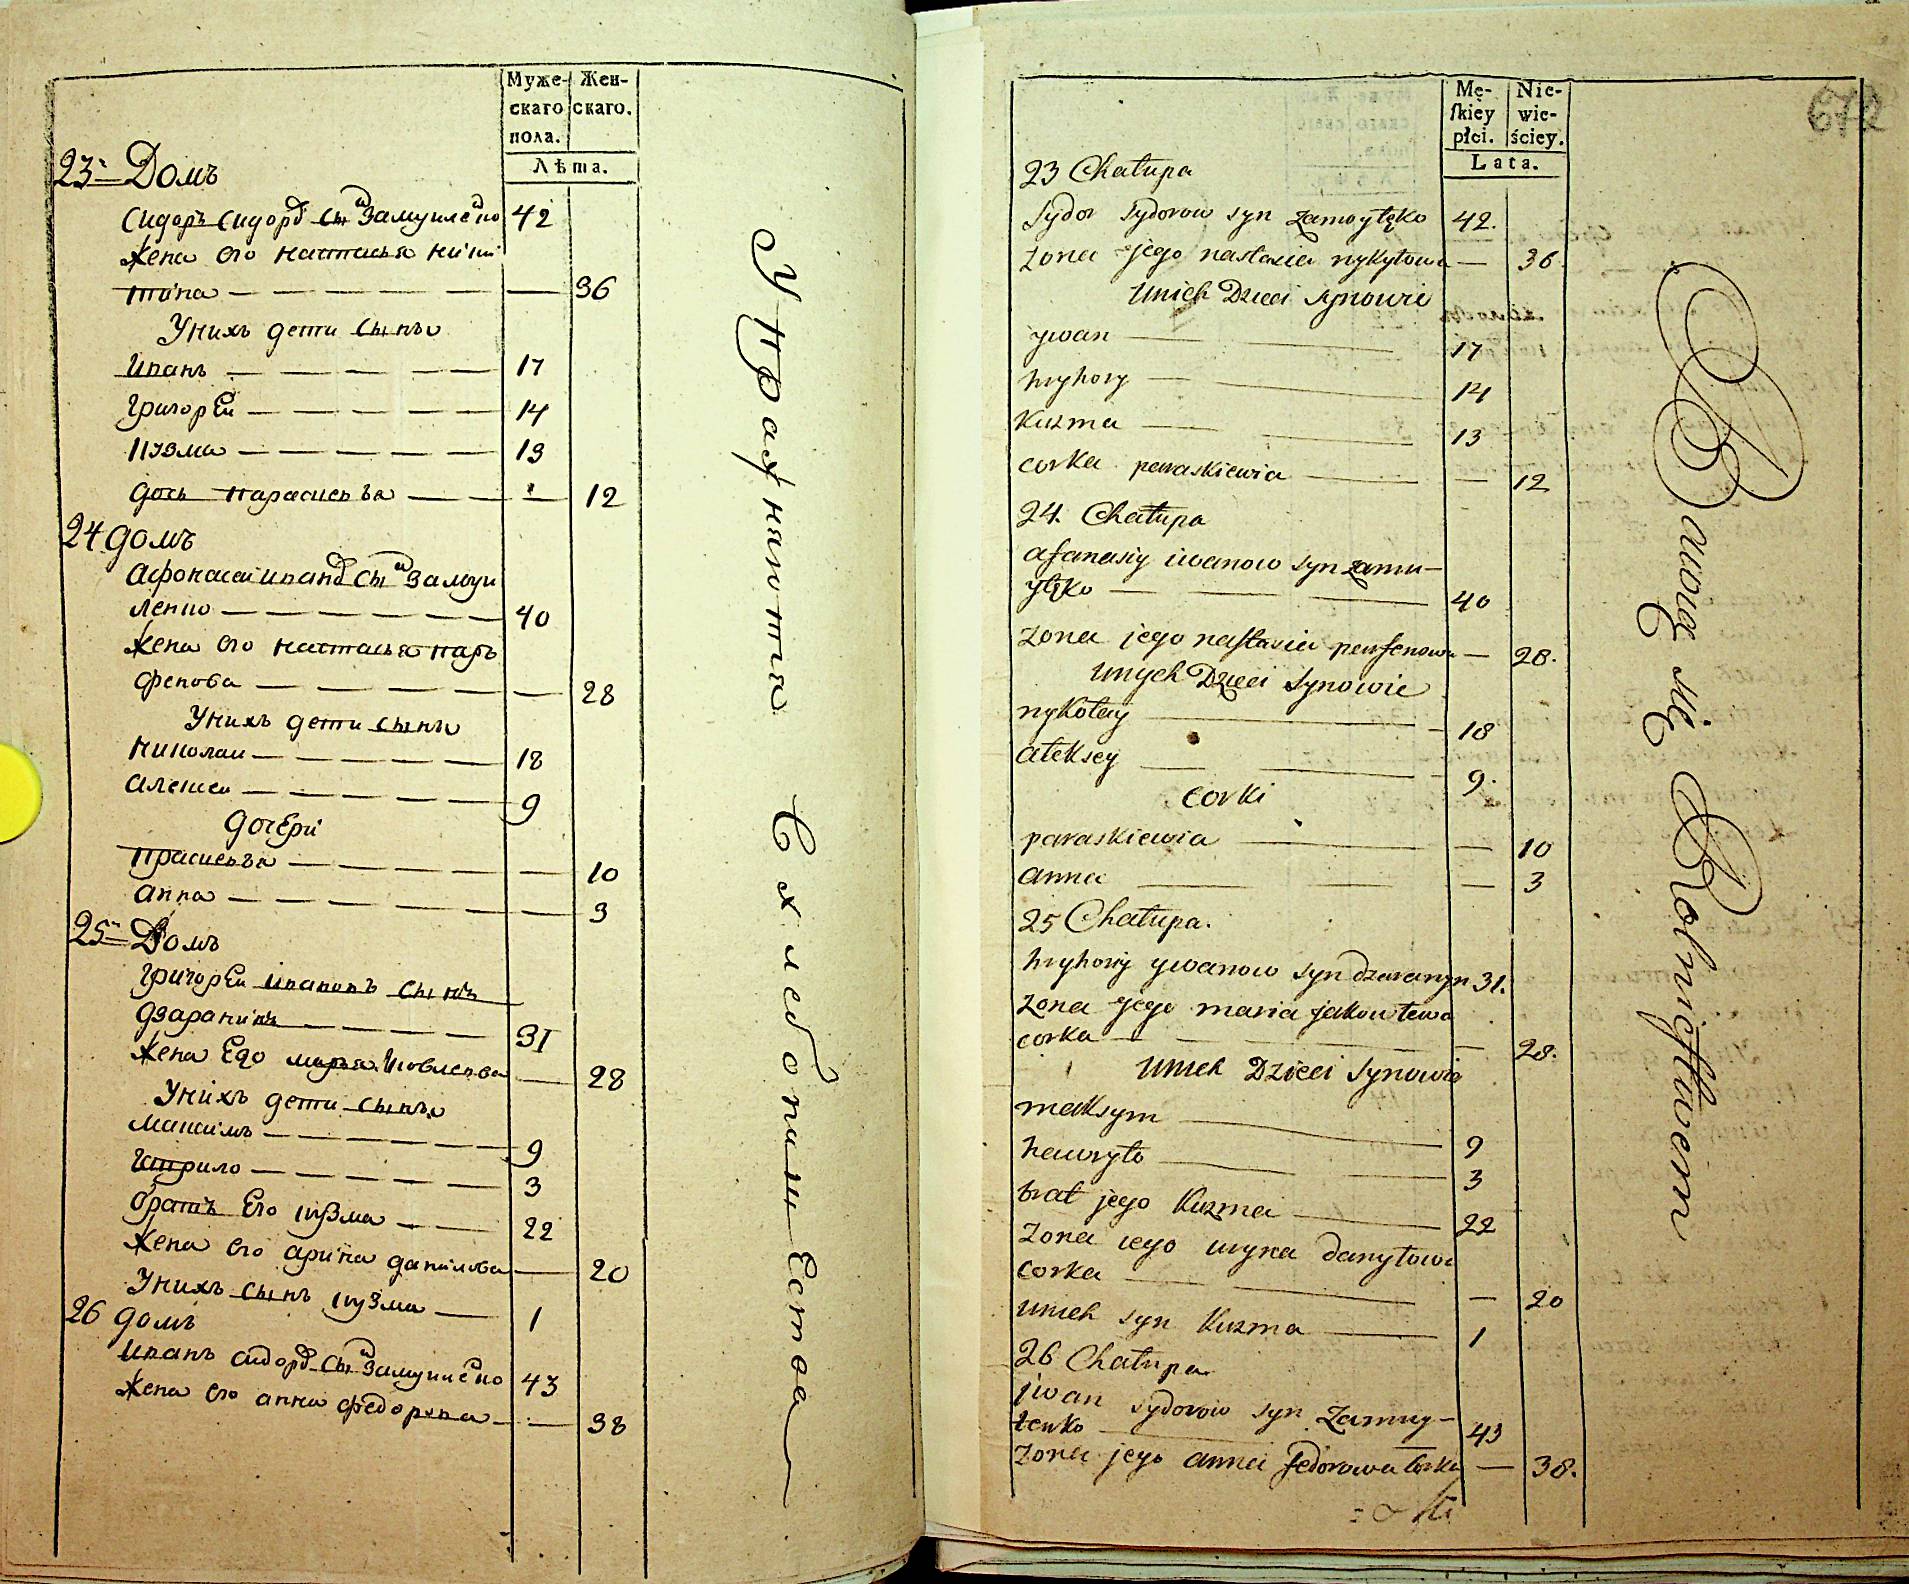 Муже- Жен-
скаго скаго.
пола.
Лѣта.
23 Домъ
Сидоръ Сидоровъ сынъ Замуиленко 42
Жена его Настасья Ники
тина — 36
У нихъ дети сынъ
Иванъ — 17
Григорей — 14
Кузма — 13
дочь Парасковья — 12
24 домъ
Афонасей Ивановъ сынъ Замуи
ленко — 40
Жена его Настасья Пар
фенова — 28
У нихъ дети сынъ
Николаи — 18
Алексеи — 9
дочери
Прасковья — 10
Анна — 3
25 Домъ
Григореи Ивановъ сынъ
дзаранинъ — 31
Жена Его Марья Иовлевова — 28
У нихъ дети сынъ
Максимъ — 9
Гаврило — 3
братъ Его Кузма — 22
Жена его Арина данилова — 20
У нихъ сынъ Кузма — 1
26 домъ
Иванъ Сидоровъ сынъ Замуиленко 43
Жена его Анна Федорова — 38
Упражняются Схлебопашества
Mę- Nie-
ſkiey wie-
płci. ściey.
Lata.
672
23 Chałupa
Sydor Sydorow syn Zamoyłęko 42.
Zona jego nastasia nykytowa — 36.
Unich Dzieci Synowie
ywan — 17
hryhory — 14
Kuzma — 13
corka paraskiewia — 12
24. Chałupa
afanasiy iwanow syn zamu-
yłęko — 40
Zona jego nastasia parfenowa — 28.
Unych Dzieci Synowie
nykołay — 18
aleksey — 9.
corki
paraskiewia — 10
anna — 3
25 Chałupa.
hryhory ywanow syn dzaranyn 31.
Zona jego maria jakowlewa
corka — 28.
Unich Dzieci Synowie
maksym — 9
hawryło — 3
brat jego Kuzma — 22
Zona iego uryna danyłowa
corka — 20
unich syn Kuzma — 1
26 Chałupa
jwan sydorow syn Zamuy-
łenko — 43
Zona jego anna fedorowa corka — 38.
Bawią się Rolnictwem